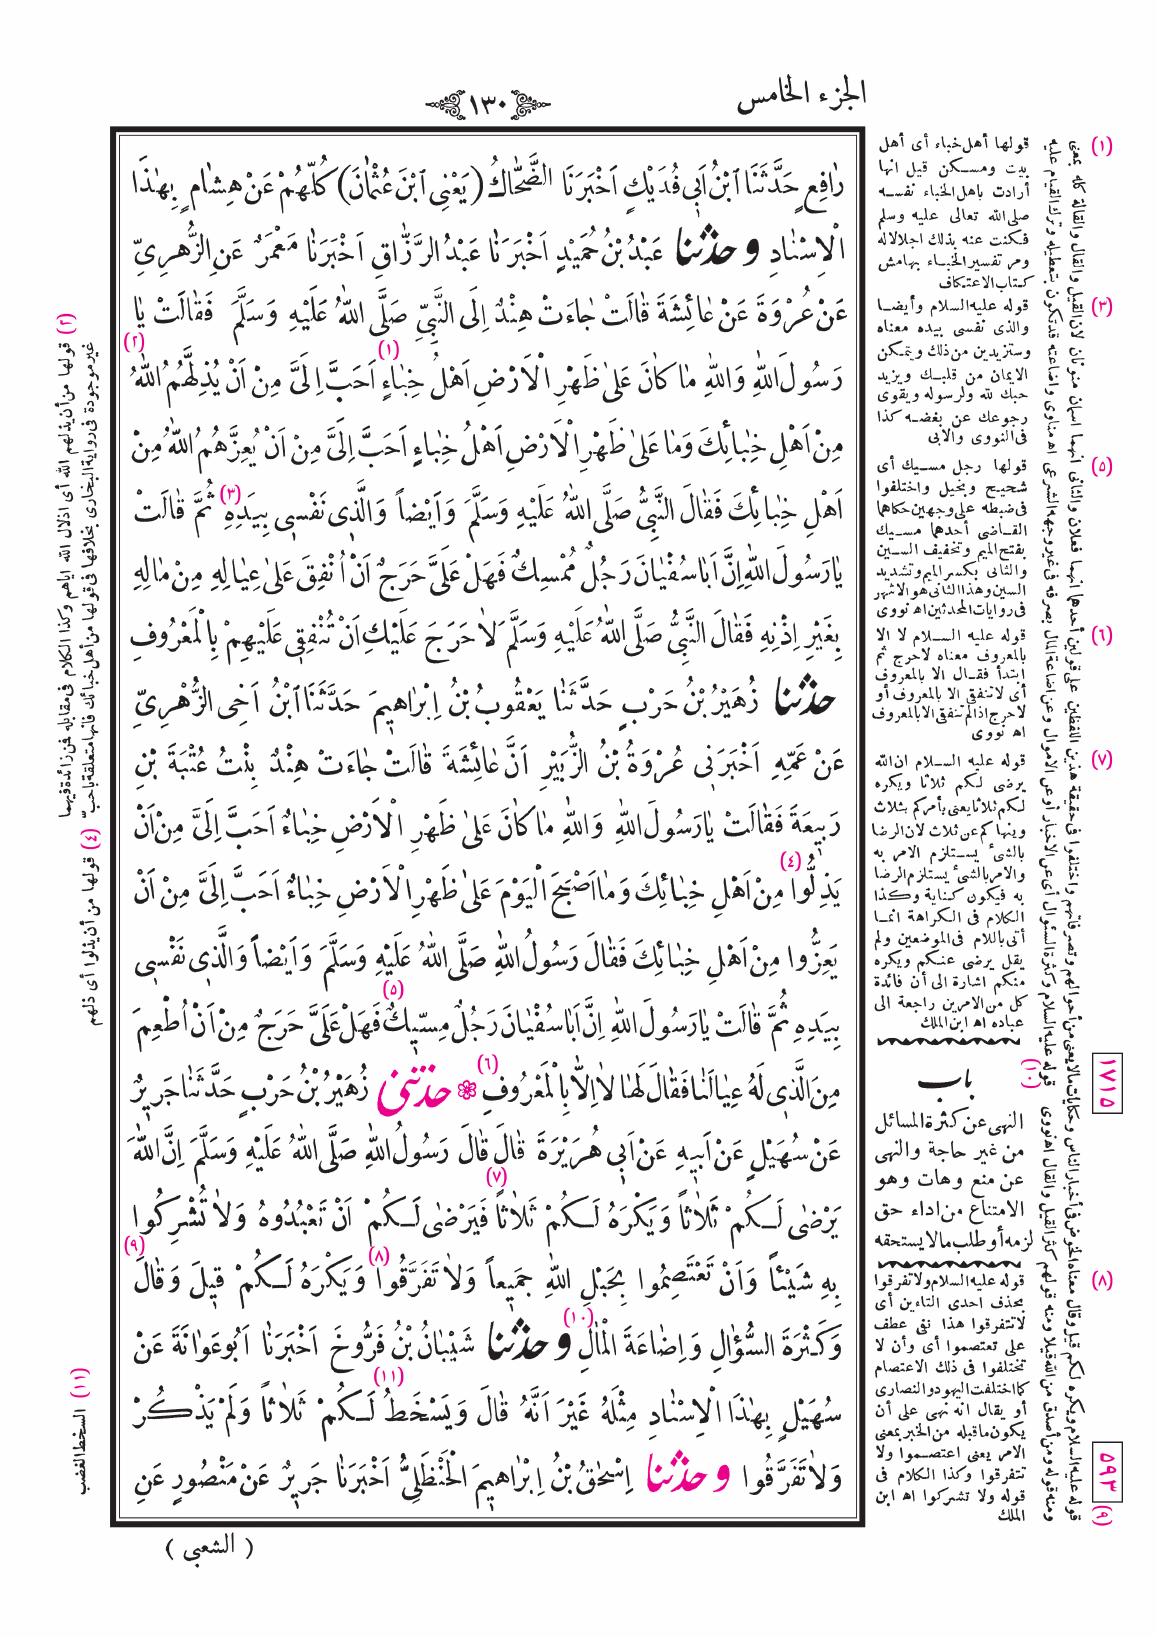 الجزء الخامس
١٣٠
رَافِعٍ حَدَّثَنَا ابْنُ اَبِى فُدَيْكٍ اَخْبَرَنَا الضَّحَّاكُ (يَعْنِى ابْنَ عُثْمَانَ) كُلُّهُمْ عَنْ هِشَامٍ بِهٰذَا
الْاِسْنَادِ وحدثنا عَبْدُ بْنُ حُمَيْدٍ اَخْبَرَنَا عَبْدُ الرَّزَّاقِ اَخْبَرَنَا مَعْمَرٌ عَنِ الزُّهْرِىِّ
عَنْ عُرْوَةَ عَنْ عَائِشَةَ قَالَتْ جَاءَتْ هِنْدٌ اِلَى النَّبِىِّ صَلَّى اللهُ عَلَيْهِ وَسَلَّمَ فَقَالَتْ يَا
رَسُولَ اللهِ وَاللهِ مَا كَانَ عَلىٰ ظَهْرِ الْاَرْضِ اَهْلُ خِبَاءٍ (١) اَحَبَّ اِلَىَّ مِنْ اَنْ يُذِلَّهُمُ اللهُ (٢)
مِنْ اَهْلِ خِبَائِكَ وَمَا عَلىٰ ظَهْرِ الْاَرْضِ اَهْلُ خِبَاءٍ اَحَبَّ اِلَىَّ مِنْ اَنْ يُعِزَّهُمُ اللهُ مِنْ
اَهْلِ خِبَائِكَ فَقَالَ النَّبِىُّ صَلَّى اللهُ عَلَيْهِ وَسَلَّمَ وَاَيْضاً وَالَّذِى نَفْسِى بِيَدِهِ (٣) ثُمَّ قَالَتْ
يَا رَسُولَ اللهِ اِنَّ اَبَا سُفْيَانَ رَجُلٌ مُمْسِكٌ فَهَلْ عَلَىَّ حَرَجٌ اَنْ اُنْفِقَ عَلىٰ عِيَالِهِ مِنْ مَالِهِ
بِغَيْرِ اِذْنِهِ فَقَالَ النَّبِىُّ صَلَّى اللهُ عَلَيْهِ وَسَلَّمَ لَا حَرَجَ عَلَيْكِ اَنْ تُنْفِقِى عَلَيْهِمْ بِالْمَعْرُوفِ
حدثنا زُهَيْرُ بْنُ حَرْبٍ حَدَّثَنَا يَعْقُوبُ بْنُ اِبْرَاهِيمَ حَدَّثَنَا ابْنُ اَخِى الزُّهْرِىِّ
عَنْ عَمِّهِ اَخْبَرَنِى عُرْوَةُ بْنُ الزُّبَيْرِ اَنَّ عَائِشَةَ قَالَتْ جَاءَتْ هِنْدٌ بِنْتُ عُتْبَةَ بْنِ
رَبِيعَةَ فَقَالَتْ يَا رَسُولَ اللهِ وَاللهِ مَا كَانَ عَلىٰ ظَهْرِ الْاَرْضِ خِبَاءٌ اَحَبَّ اِلَىَّ مِنْ اَنْ
يَذِلُّوا (٤) مِنْ اَهْلِ خِبَائِكَ وَمَا اَصْبَحَ الْيَوْمَ عَلىٰ ظَهْرِ الْاَرْضِ خِبَاءٌ اَحَبَّ اِلَىَّ مِنْ اَنْ
يَعِزُّوا مِنْ اَهْلِ خِبَائِكَ فَقَالَ رَسُولُ اللهِ صَلَّى اللهُ عَلَيْهِ وَسَلَّمَ وَاَيْضاً وَالَّذِى نَفْسِى
بِيَدِهِ ثُمَّ قَالَتْ يَا رَسُولَ اللهِ اِنَّ اَبَا سُفْيَانَ رَجُلٌ مِسِّيكٌ (٥) فَهَلْ عَلَىَّ حَرَجٌ مِنْ اَنْ اُطْعِمَ
مِنَ الَّذِى لَهُ عِيَالَنَا فَقَالَ لَهَا لَا اِلَّا بِالْمَعْرُوفِ (٦) حدثنى زُهَيْرُ بْنُ حَرْبٍ حَدَّثَنَا جَرِيرٌ
عَنْ سُهَيْلٍ عَنْ اَبِيهِ عَنْ اَبِى هُرَيْرَةَ قَالَ قَالَ رَسُولُ اللهِ صَلَّى اللهُ عَلَيْهِ وَسَلَّمَ اِنَّ اللهَ
يَرْضٰى لَكُمْ ثَلَاثاً وَيَكْرَهُ لَكُمْ ثَلَاثاً (٧) فَيَرْضٰى لَكُمْ اَنْ تَعْبُدُوهُ وَلَا تُشْرِكُوا
بِهِ شَيْئاً وَاَنْ تَعْتَصِمُوا بِحَبْلِ اللهِ جَمِيعاً وَلَا تَفَرَّقُوا (٨) وَيَكْرَهُ لَكُمْ قِيلَ وَقَالَ (٩)
وَكَثْرَةَ السُّؤَالِ وَاِضَاعَةَ الْمَالِ (١٠) وحدثنا شَيْبَانُ بْنُ فَرُّوخَ اَخْبَرَنَا اَبُو عَوَانَةَ عَنْ
سُهَيْلٍ بِهٰذَا الْاِسْنَادِ مِثْلَهُ غَيْرَ اَنَّهُ قَالَ وَيَسْخَطُ (١١) لَكُمْ ثَلَاثاً وَلَمْ يَذْكُرْ
وَلَا تَفَرَّقُوا وحدثنا اِسْحٰقُ بْنُ اِبْرَاهِيمَ الْحَنْظَلِىُّ اَخْبَرَنَا جَرِيرٌ عَنْ مَنْصُورٍ عَنِ
( الشعبى )
(١) قولها أهل خباء أى أهل
بيت ومسكن قيل انها
أرادت باهل الخباء نفسه
صلى الله تعالى عليه وسلم
فكنت عنه بذلك اجلالاله
ومر تفسير الخباء بهامش
كتاب الاعتكاف
(٣) قوله عليه السلام وأيضا
والذى نفسى بيده معناه
وستزيدين من ذلك ويتمكن
الايمان من قلبك ويزيد
حبك لله ولرسوله ويقوى
رجوعك عن بغضه كذا
فى النووى والابى
(٥) قولها رجل مسيك أى
شحيح وبخيل واختلفوا
فى ضبطه على وجهين حكاهما
القاضى أحدهما مسيك
بفتح الميم وتخفيف السين
والثانى بكسر الميم وتشديد
السين وهذا الثانى هو الاشهر
فى روايات المحدثين اه نووى
(٦) قوله عليه السلام لا الا
بالمعروف معناه لاحرج ثم
ابتدأ فقال الا بالمعروف
أى لاتنفقى الا بالمعروف أو
لاحرج اذا لم تنفقى الا بالمعروف
اه نووى
(٧) قوله عليه السلام ان الله
يرضى لكم ثلاثا ويكره
لكم ثلاثا يعنى يأمركم بثلاث
وينهاكم عن ثلاث لان الرضا
بالشئ يستلزم الامر به
والامر بالشئ يستلزم الرضا
به فيكون كناية وكذا
الكلام فى الكراهة انما
أتى باللام فى الموضعين ولم
يقل يرضى عنكم ويكره
منكم اشارة الى أن فائدة
كل من الامرين راجعة الى
عباده اه ابن الملك
باب
النهى عن كثرة المسائل
من غير حاجة والنهى
عن منع وهات وهو
الامتناع من اداء حق
لزمه أو طلب مالايستحقه
(٨) قوله عليه السلام ولاتفرقوا
بحذف احدى التاءين أى
لاتتفرقوا هذا نفى عطف
على تعتصموا أى وأن لا
تختلفوا فى ذلك الاعتصام
كما اختلفت اليهود والنصارى
أو يقال انه نهى على أن
يكون ماقبله من الخبر بمعنى
الامر يعنى اعتصموا ولا
تتفرقوا وكذا الكلام فى
قوله ولا تشركوا اه ابن
الملك
١٧١٥
٥٩٣
(٩) قوله عليه السلام ويكره لكم قيل وقال معناه الخوض فى أخبار الناس وحكايات مالايعنى من أحوالهم وتصرفاتهم واختلفوا فى حقيقة هذين اللفظين على قولين أحدهما انهما فعلان والثانى انهما اسمان منونان لان القيل والقال والقالة كله بمعنى
ومنه قوله ومن أصدق من الله قيلا ومنه قولهم كثر القيل والقال اه نووى (١٠) قوله عليه السلام وكثرة السئوال أى عن الاخبار أو عن الاموال وعن اضاعة المال بصرفه فى غير وجهه الشرعى اه مناوى واضاعته قد تكون بتعطيله وترك القيام عليه
(٢) قولها من أن يذلهم الله أى اذلال الله اياهم وكذا الكلام فى مقابله فمن زائدة فيهما
غير موجودة فى رواية البخارى بخلافها فى قولها من أهل خبائك فانها متعلقة باحب
(٤) قولها من أن يذلوا أى ذلهم
(١١) السخط الغضب